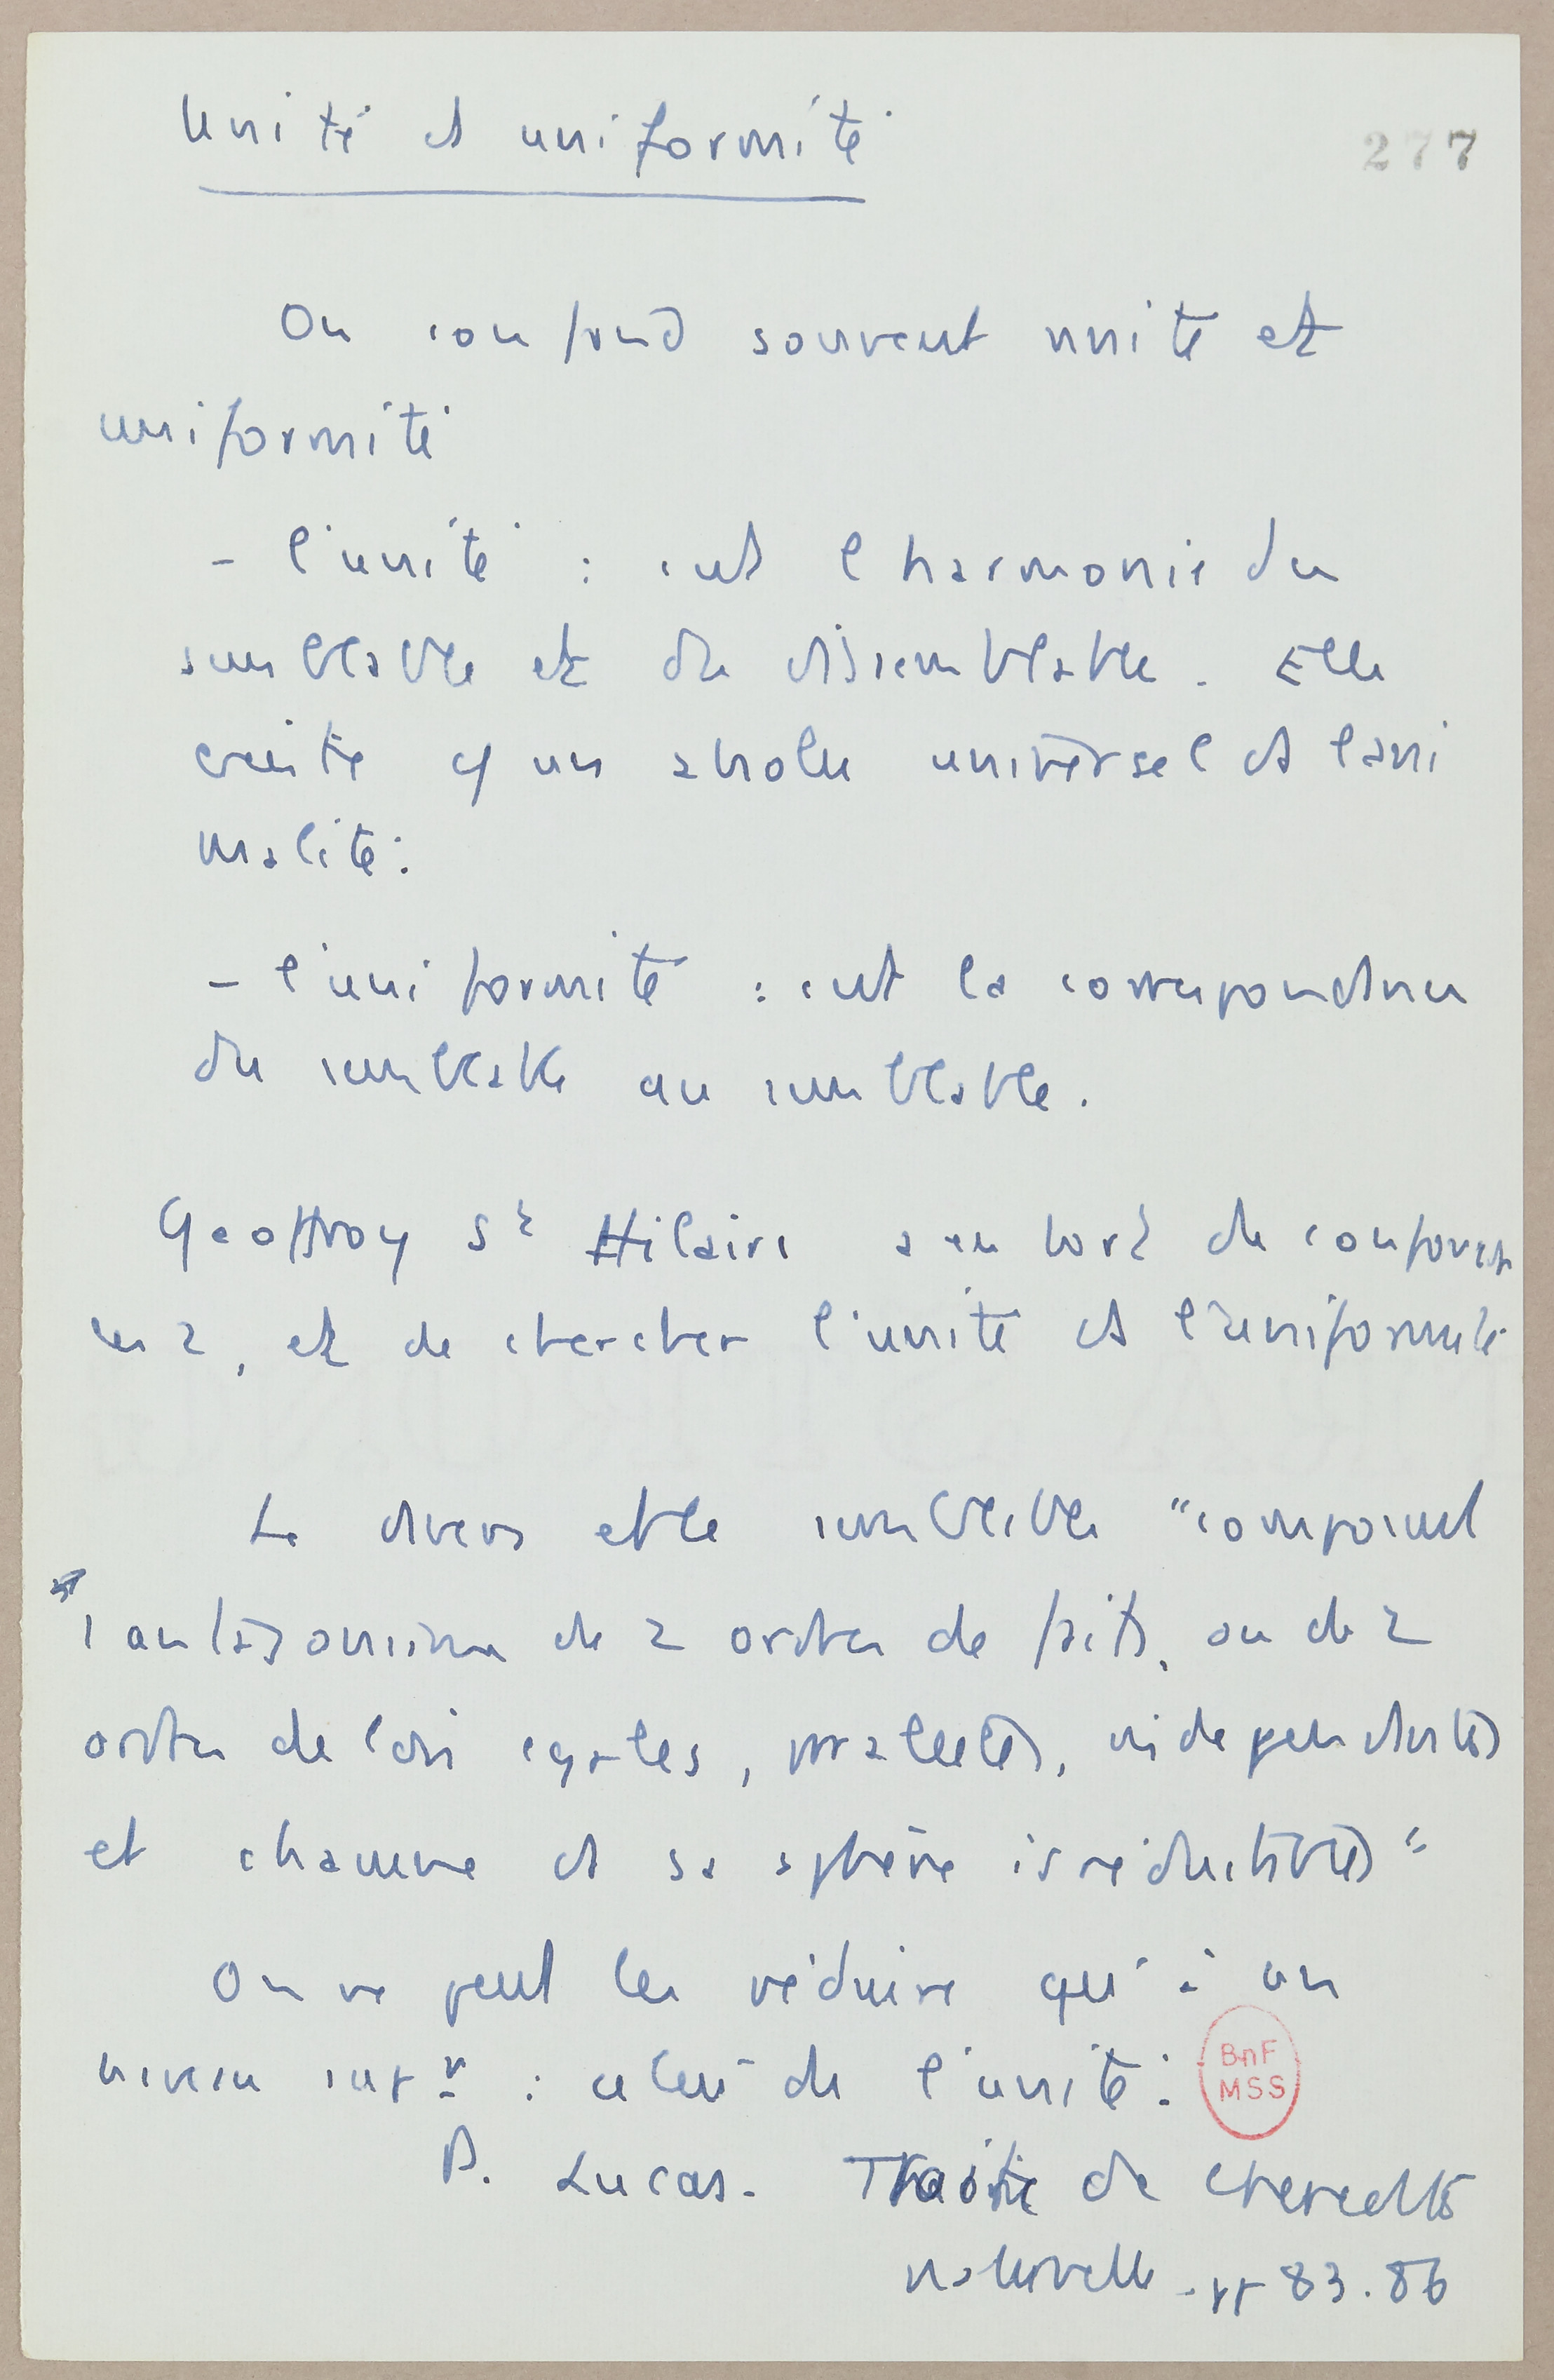 Unité et uniformité
277
On confond souvent unité et
uniformité
- l'unité : c'est l'harmonie du
semblable et du dissemblable. Elle
existe universel et l'ani
malité.
- l'uniformité : c'est la correspondance
du semblable au semblable.
Geoffroy St Hilaire a eu tort de confondre
les 2, et de chercher l'unité ds l'uniformité
Le divers et le semblable "composent
l'antagonisme de 2 ordres de faits, ou de 2
ordres de lois égales, indépendantes
et chacune ds sa sphère irréductibles"
On ne peut les réduire qu'à un
niveau supr : celui de l'unité.
BnF
MSS
P. Lucas. Traité de l'hérédité
naturelle. pp 83.86